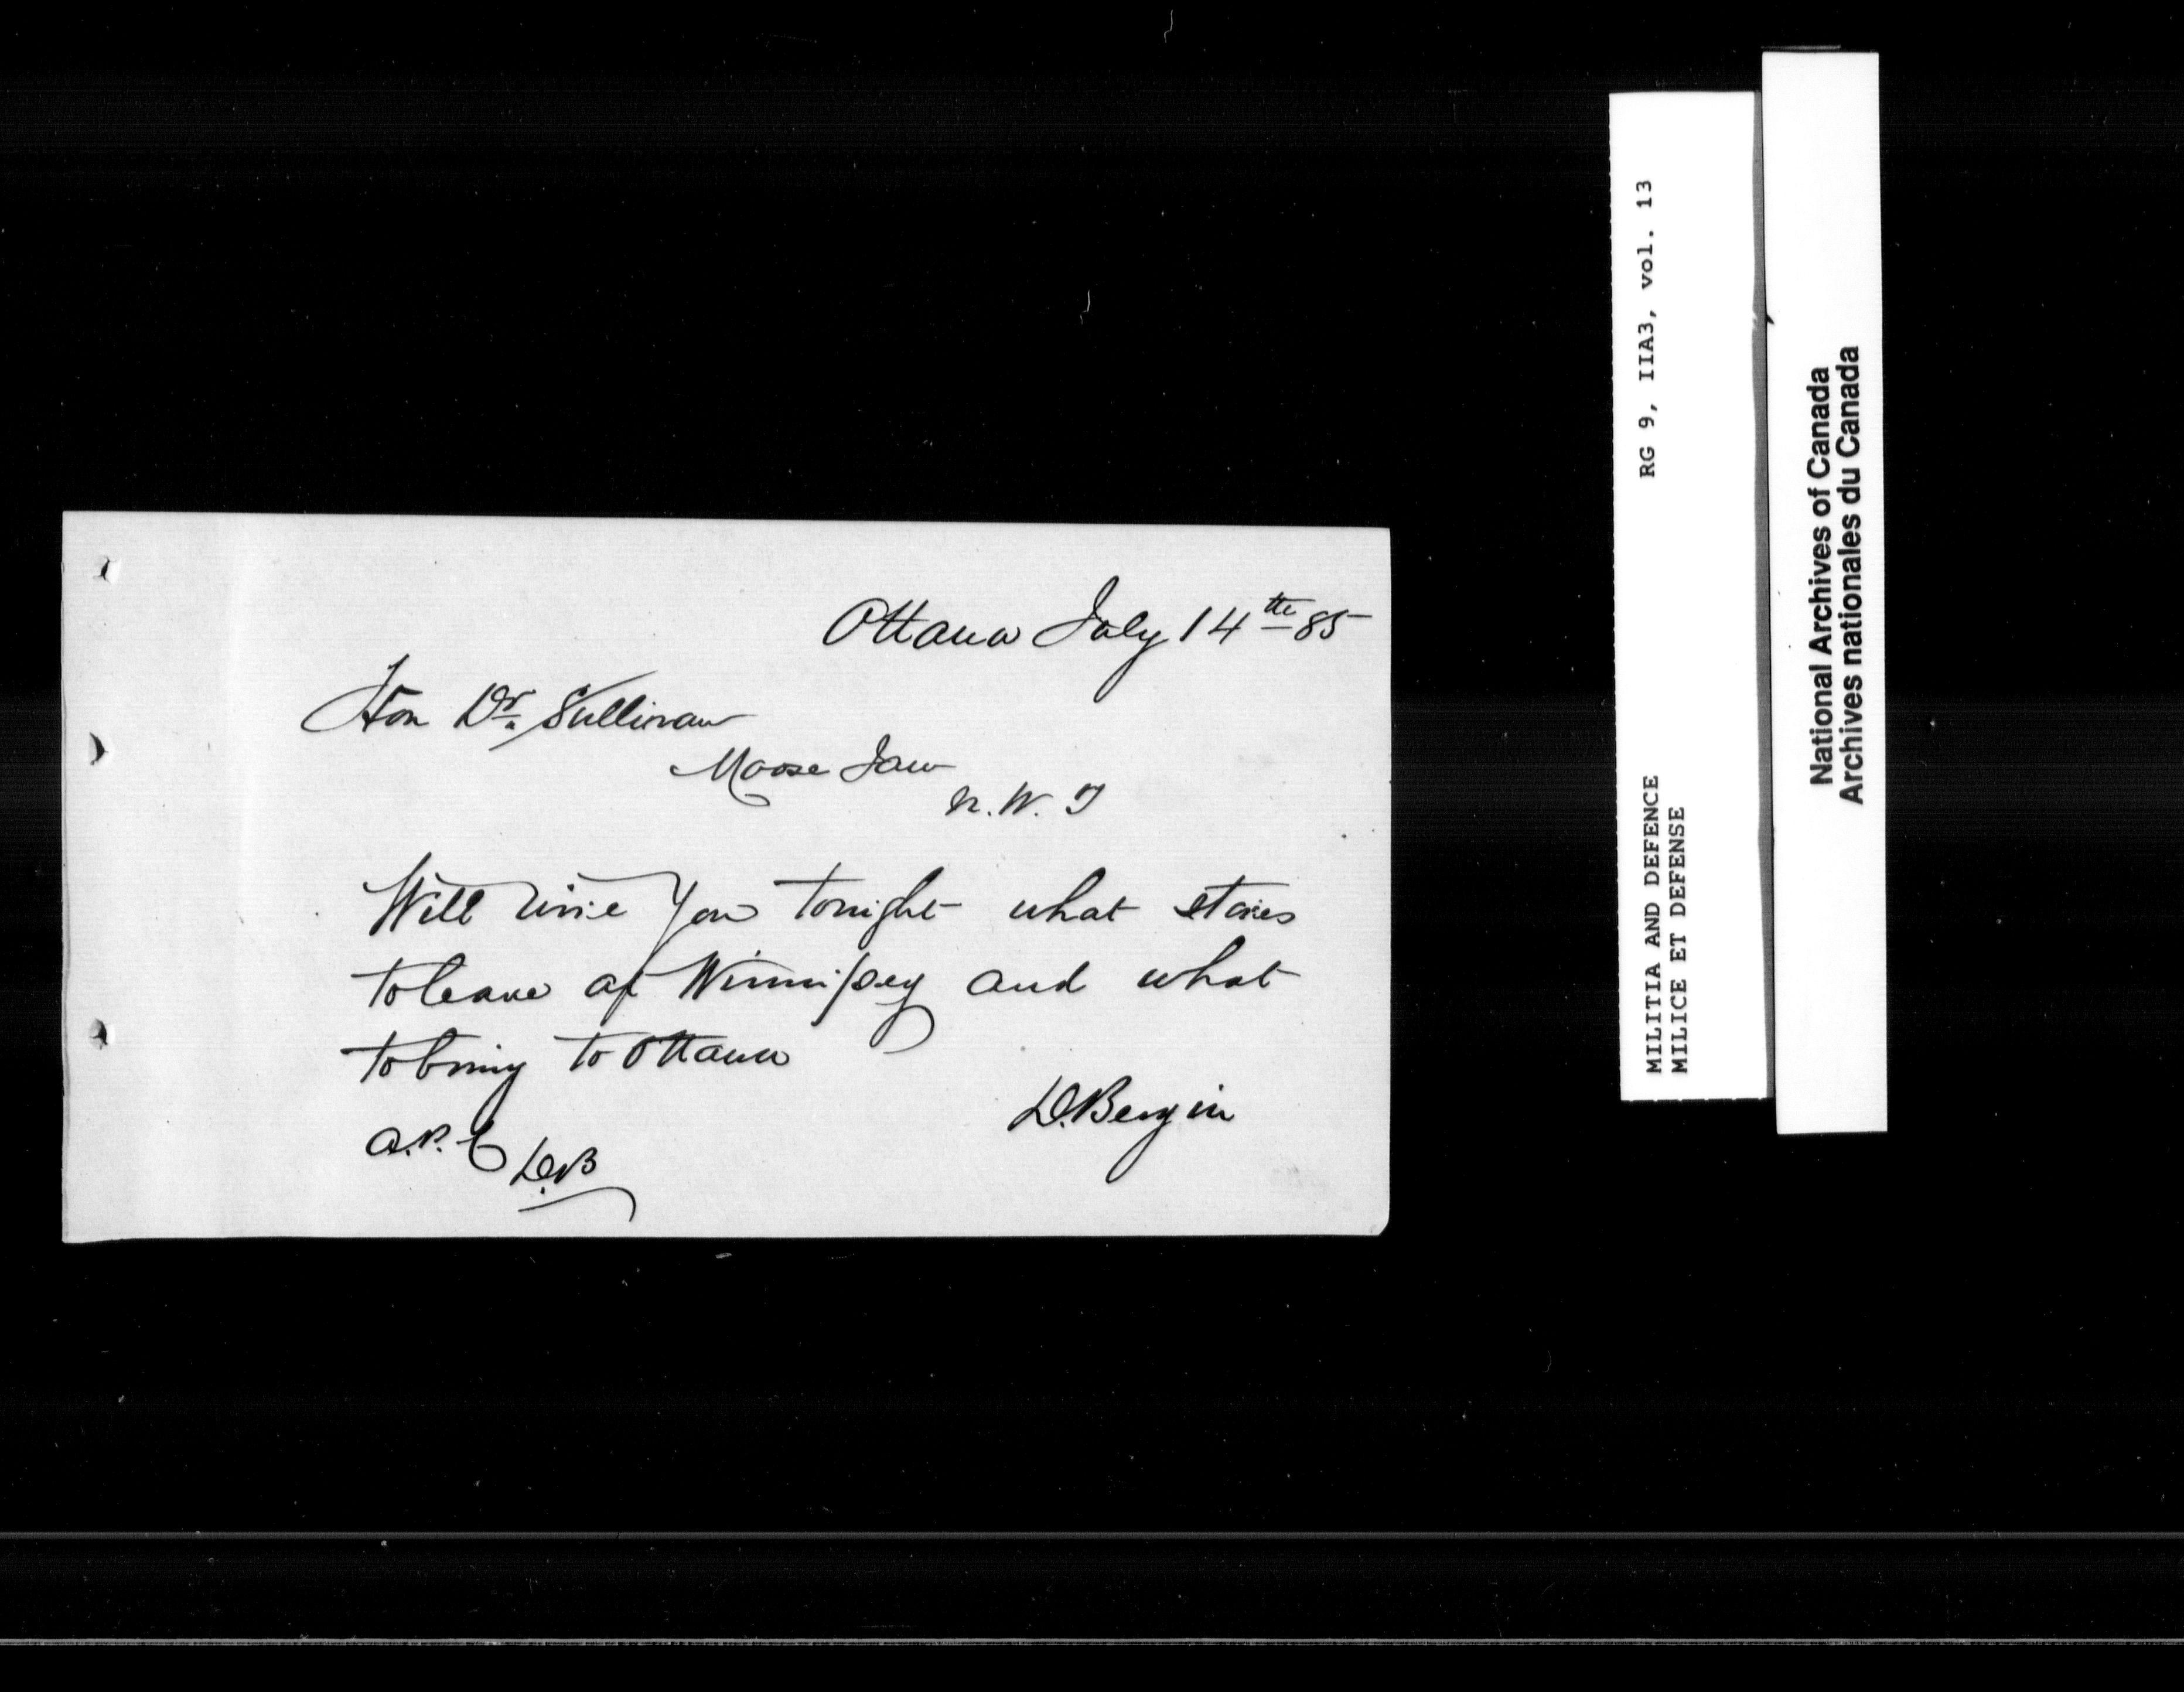 Ottawa July 14th 85
Hon Dr. Sullivan
Moose Jaw
N. W. T
Will wire you tonight what stores
to leave at Winnipeg and what
to bring to Ottawa
D. Bergin
D.B
RG 9, IIA3, vol. 13
MILITIA AND DEFENCE
MILICE ET DEFENSE
National Archives of Canada
Archives nationales du Canada